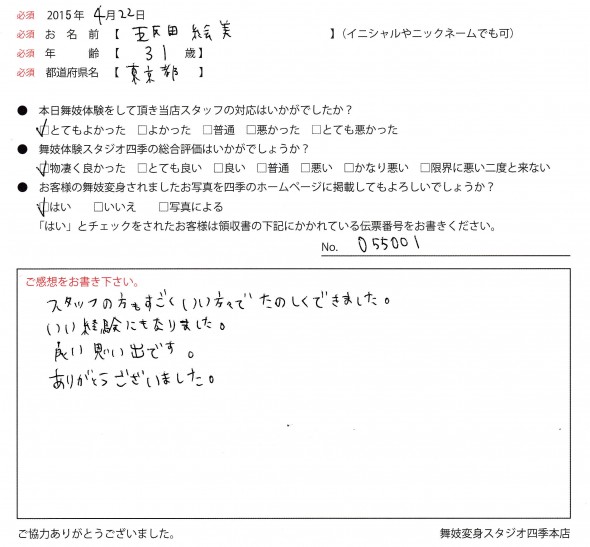 必須 2015年 4月22日
必須 お名前【 五反田 絵美 】(イニシャルやニックネームでも可)
必須 年齢【 31 歳】
必須 都道府県名【 東京都 】
● 本日舞妓体験をして頂き当店スタッフの対応はいかがでしたか?
☑とてもよかった □よかった □普通 □悪かった □とても悪かった
● 舞妓体験スタジオ四季の総合評価はいかがでしょうか?
☑物凄く良かった □とても良い □良い □普通 □悪い □かなり悪い □限界に悪い二度と来ない
● お客様の舞妓変身されましたお写真を四季のホームページに掲載してもよろしいでしょうか?
☑はい □いいえ □写真による
「はい」とチェックをされたお客様は領収書の下記にかかれている伝票番号をお書きください。
No. 055001
ご感想をお書き下さい。
スタッフの方もすごくいい方々でたのしくできました。
いい経験にもなりました。
良い思い出です。
ありがとうございました。
ご協力ありがとうございました。
舞妓変身スタジオ四季本店